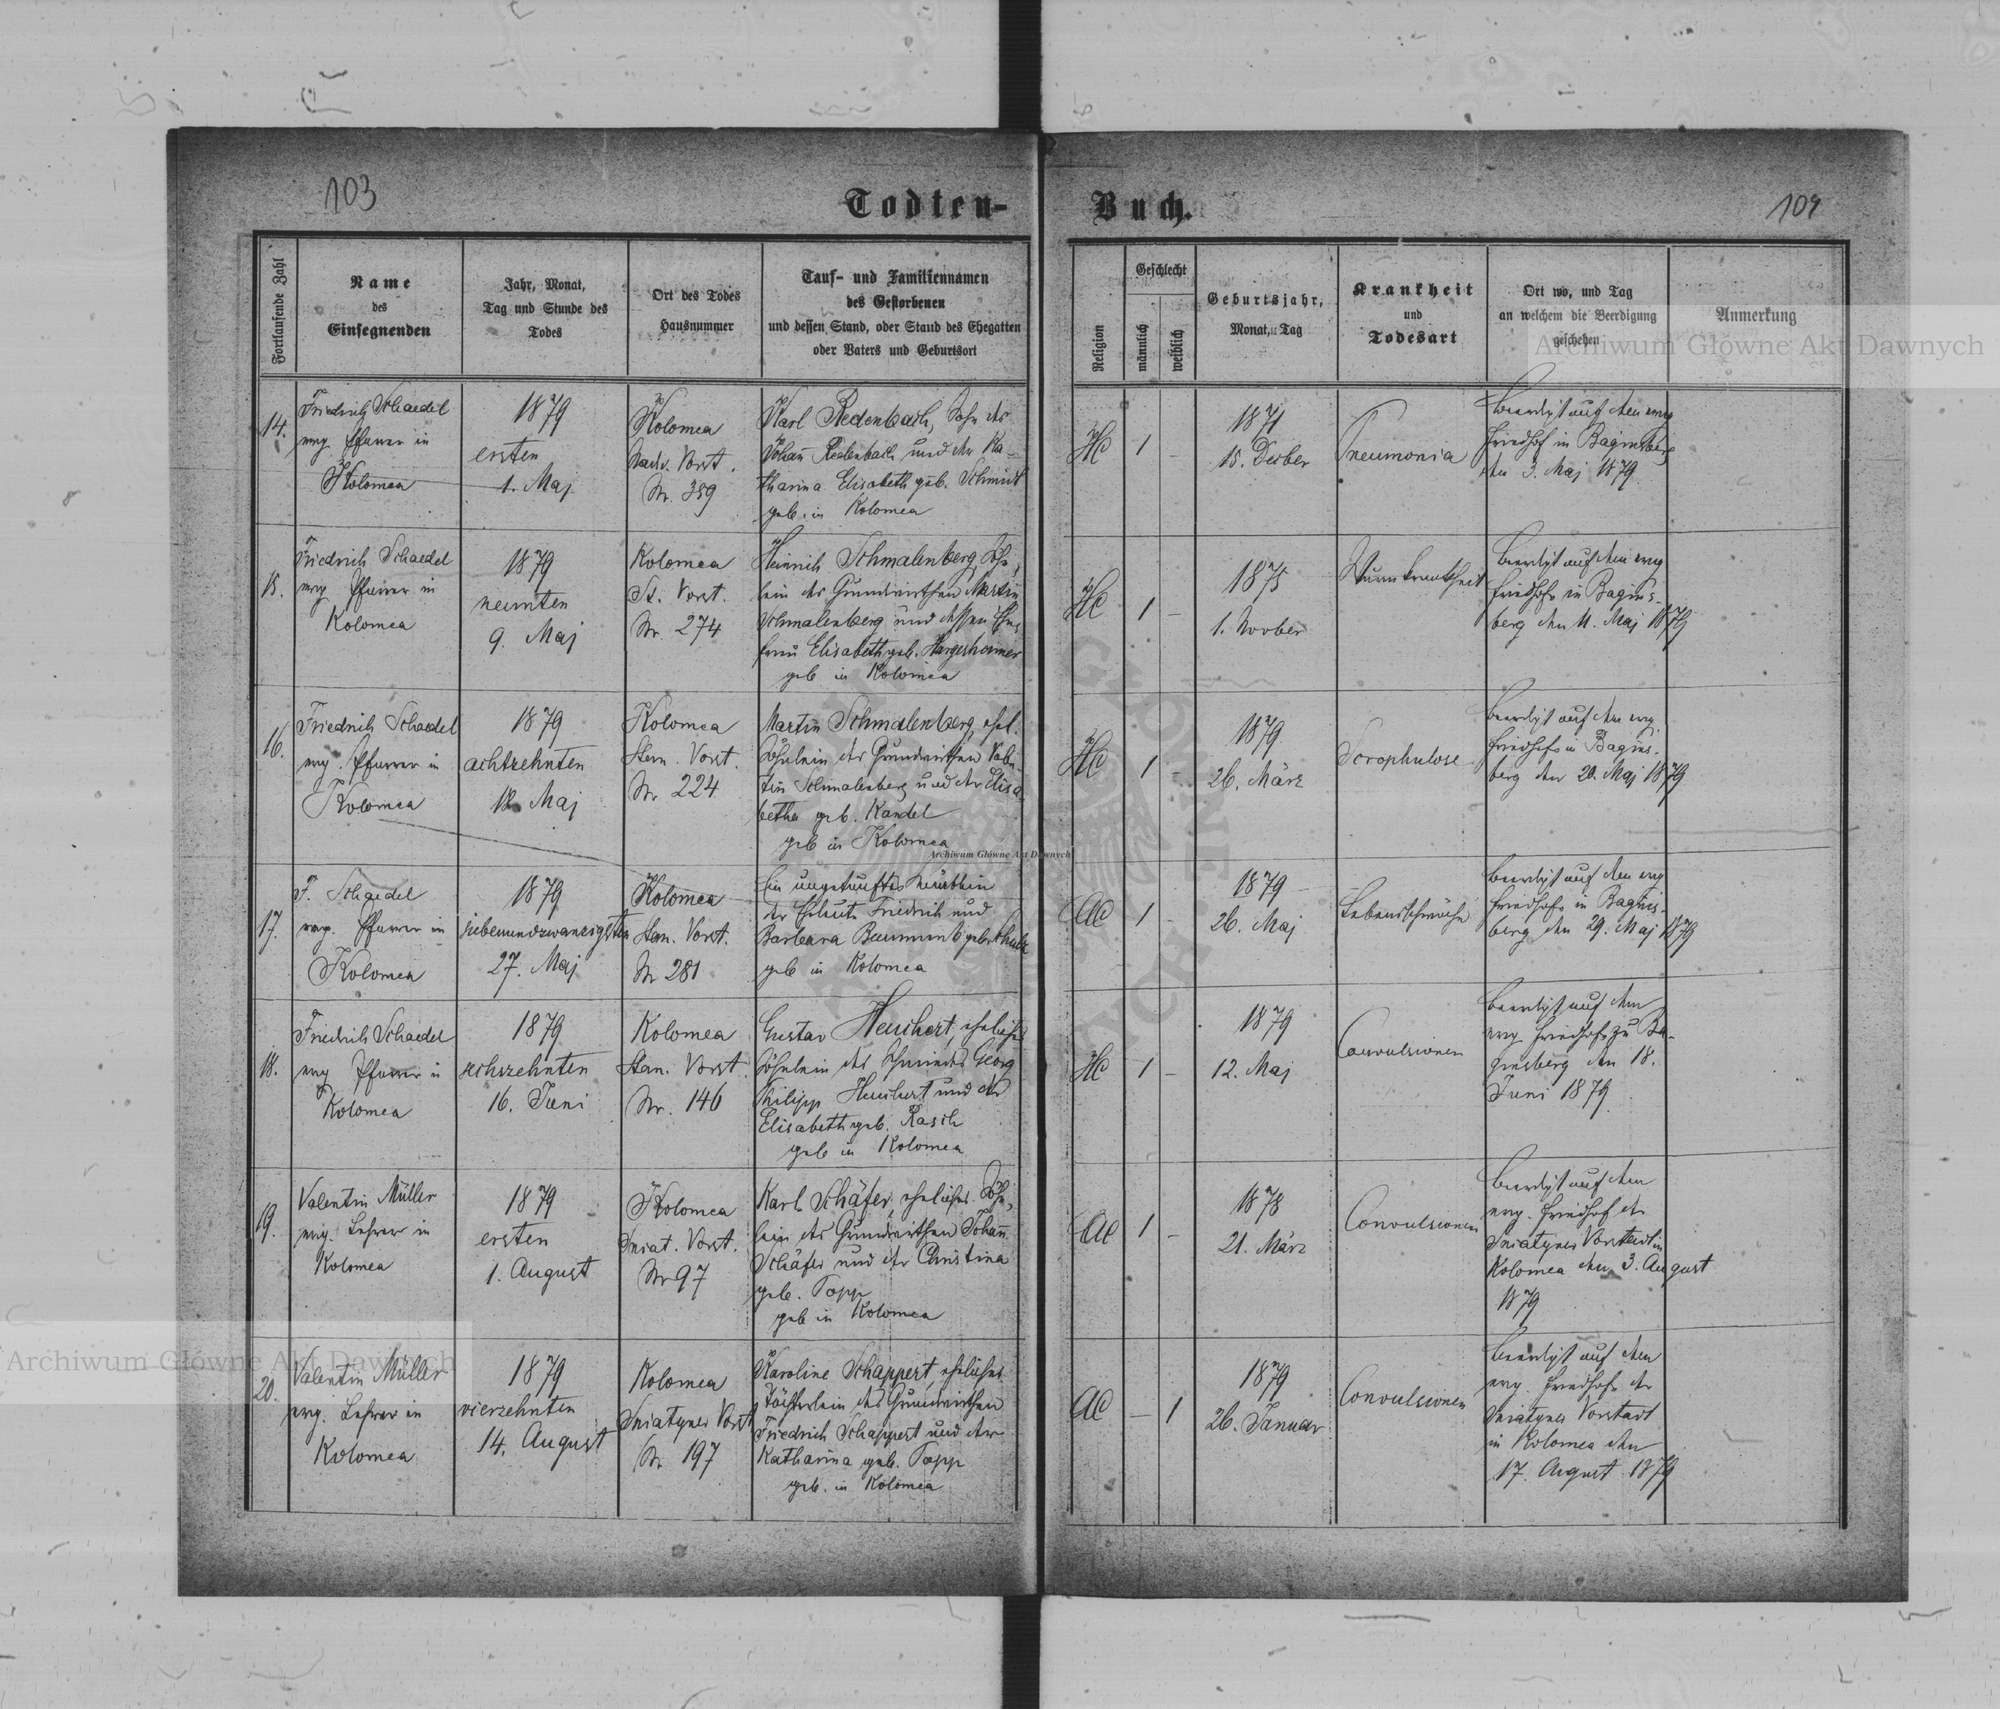 103
Todten-
Buch.
104
Fortlaufende Zahl
Name
des
Einsegnenden
Jahr, Monat,
Tag und Stunde des
Todes
Ort des Todes
Hausnummer
Tauf- und Familiennamen
des Gestorbenen
und dessen Stand, oder Stand des Ehegatten
oder Vaters und Geburtsort
Religion
Geschlecht
männlich
weiblich
Geburtsjahr,
Monat, Tag
Krankheit
und
Todesart
Ort wo, und Tag
an welchem die Beerdigung
geschehen
Anmerkung
14.
Friedrich Schaedel
evg. Pfarrer in
Kolomea
1879
ersten
1. Maj
Kolomea
Nadw. Vorst.
Nr. 359
Karl Redenbach, Sohn des
Johann Redenbach und der Ka-
tharina Elisabeth geb. Schmidt
geb. in Kolomea
HC
1
-
1871
15. Dezber
Pneumonia
Beerdigt auf dem evg
Friedhof in Baginsberg
den 3. Maj 1879
15.
Friedrich Schaedel
evg Pfarrer in
Kolomea
1879
neunten
9. Maj
Kolomea
St. Vorst.
Nr. 274
Heinrich Schmalenberg, Söhn-
lein des Grundwirthen Martin
Schmalenberg und dessen Ehe-
frau Elisabeth geb. Hargesheimer
geb in Kolomea
HC
1
-
1875
1. Novber
Wurmkrankheit
Beerdigt auf dem evg
Friedhofe in Bagins-
berg den 11. Maj 1879
16.
Friedrich Schaedel
evg. Pfarrer in
Kolomea
1879
achtzehnten
18. Maj
Kolomea
Stan. Vorst.
Nr 224
Martin Schmalenberg, ehel.
Söhnlein des Grundwirthen Valen-
tin Schmalenberg und der Elisa-
betha geb. Kandel
geb in Kolomea
HC
1
-
1879
26. März
Scrophulose
Beerdigt auf dem evg.
Friedhofe in Bagins-
berg den 20. Maj 1879
17.
F. Schaedel
evg. Pfarrer in
Kolomea
1879
siebenundzwanzigsten
27. Maj
Kolomea
Stan. Vorst.
Nr 281
Ein ungetauftes Knäblein
der Eheleute Friedrich und
Barbara
geb in Kolomea
AC
1
-
1879
26. Maj
Lebensschwäche
Beerdigt auf dem evg
Friedhofe in Bagins-
berg den 29. Maj 1879
18.
Friedrich Schaedel
evg Pfarrer in
Kolomea
1879
sechszehnten
16. Juni
Kolomea
Stan. Vorst.
Nr. 146
Gustav Heuchert, eheliches
Söhnlein des Schmiedes Georg
Philipp Heuchert und der
Elisabeth geb. Rasch
geb in Kolomea
HC
1
-
1879
12. Maj
Convulsionen
Beerdigt auf dem
evg Friedhofe zu Ba-
ginsberg den 18.
Juni 1879
19.
Valentin Müller
evg. Lehrer in
Kolomea
1879
ersten
1. August
Kolomea
Sniat. Vorst.
Nr 97
Karl Schäfer, eheliches Söhn-
lein des Grundwirthen Johann
Schäfer und der Christina
geb. Topp
geb in Kolomea
AC
1
-
1878
21. März
Convulsionen
Beerdigt auf dem
evg. Friedhof der
Sniatyner Vorstadt in
Kolomea den 3. August
1879
20.
Valentin Müller
evg. Lehrer in
Kolomea
1879
vierzehnten
14. August
Kolomea
Sniatyner Vorst
Nr. 197
Karoline Schappert, eheliches
Töchterlein des Grundwirthen
Friedrich Schappert und der
Katharina geb. Topp
geb. in Kolomea
AC
-
1
1879
26. Januar
Convulsionen
Beerdigt auf dem
evg. Friedhofe der
Sniatyner Vorstadt
in Kolomea den
17. August 1879
Archiwum Główne Akt Dawnych
Archiwum Główne Akt Dawnych
Archiwum Główne Akt Dawnych